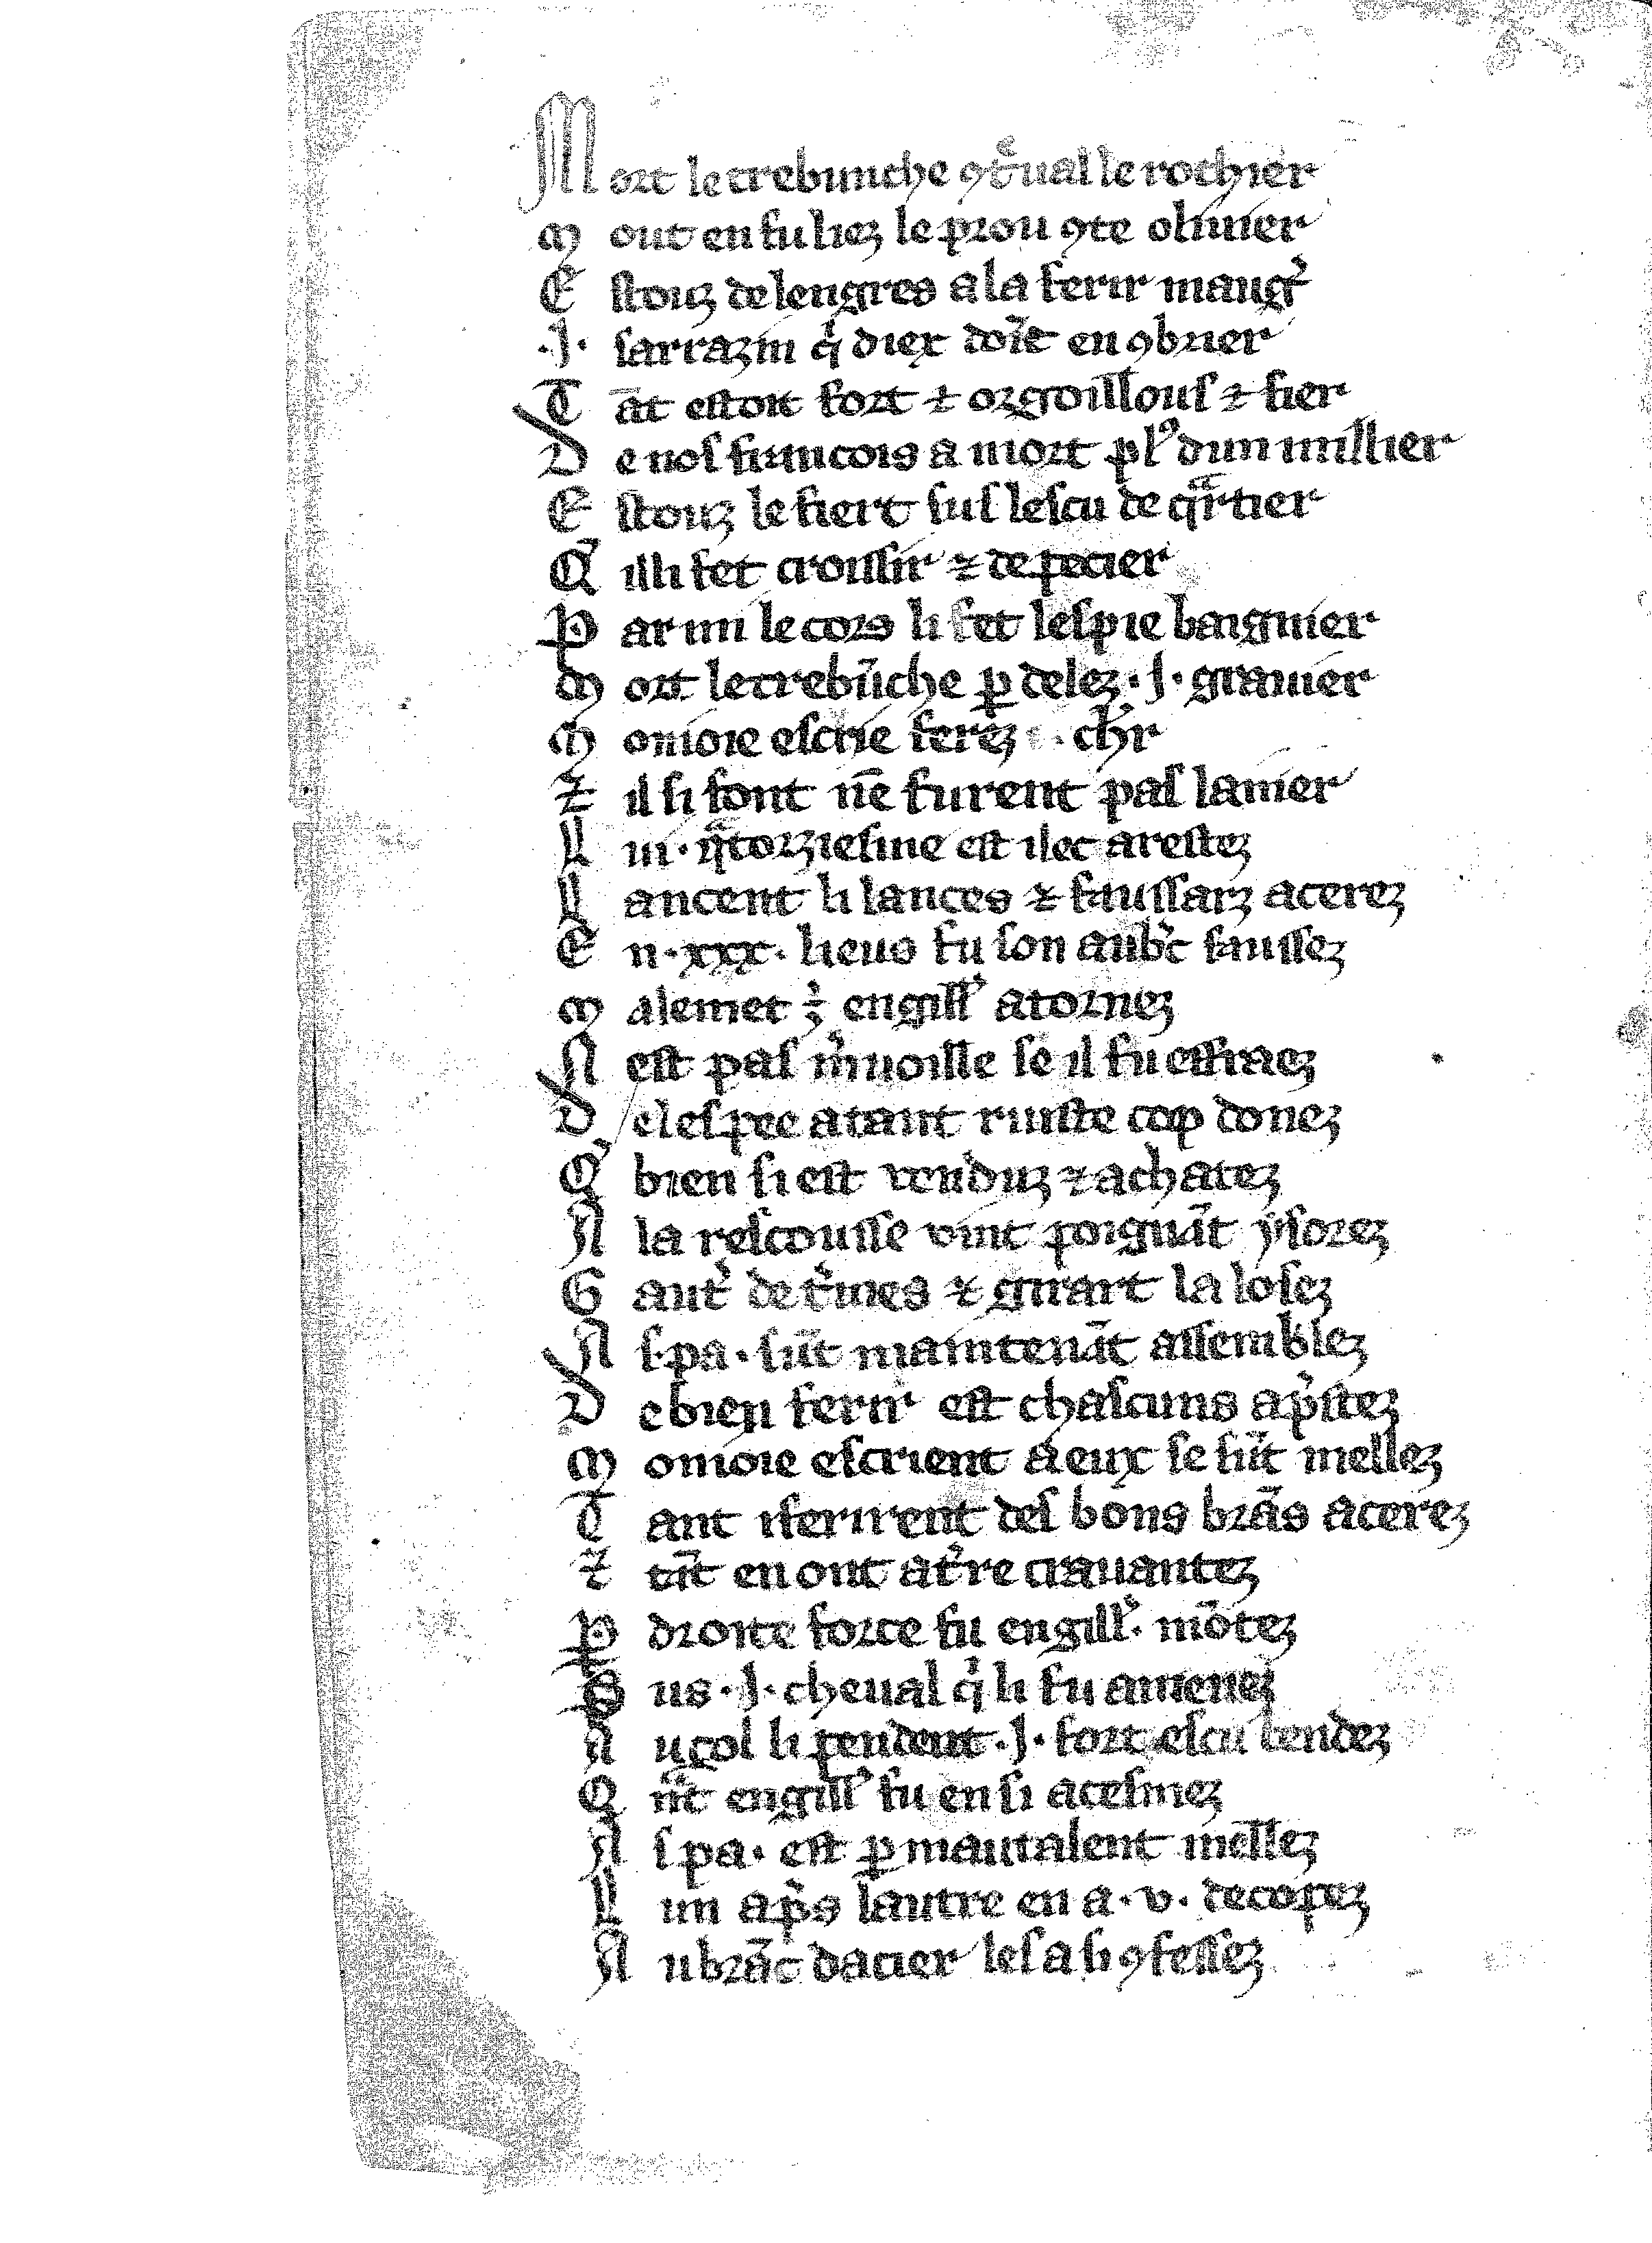 Mort le trebunche ꝯtͣual le rochier
Mout en fu liez le prou ꝯte oliuier
Estouz de lengres a la ferir maugͥ
.J. sarrazin qͥ diex doīt en ꝯbrier
Tāt estoit fort ⁊ orgoillous ⁊ fier
De nos francois a mort plꝰ dun millier
Estouz le fiert sus lescu de qͣrtier
Qͥl li fet croissir ⁊ depecier
Parmi le cors li fet lespie baignier
Mort le trebūche ꝑ delez .J. grauier
Monioie escrie ferez chͬr
⁊ il si font nē furent pas lanier
Li .qͣtorziesme est ilec arestez
Lancent li lances ⁊ faussarz acerez
En .xxx. lieus fu son aubͨc faussez
Malemet ÷ engillͬ atornez
Nest pas mͬuoille se il fu effraez
De lespee a tant ruiste cop donez
Qͥ bien si est venduz ⁊ achatez
A la rescousse vint poignāt ysorez
Gautͬ de tͬmes ⁊ girart la losez
As .pa. sūt maintenāt assemblez
De bien ferir est chascuns apͬstez
Monioie escrient a eux se sūt mellez
Tant i ferirent des bons brās acerez
⁊ tāt en ont a tͬre crauantez
Ꝑ droite force fu engillͬ. mōtez
Sus .J. cheual qͥ li fu amenez
Au col li pendent .J. fort escu bendez
Qͣnt engillͬ fu ensi acesmez
As pa. est ꝑ mautalent mellez
Lun apͬs lautre en a .v. decopez
Au brāc dacier les a si ꝯfessez